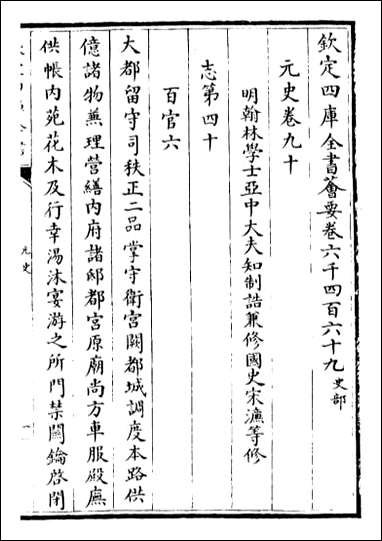 欽定四庫全書薈要卷六千四百六十九史部
元史卷九十
明翰林學士亞中大夫知制誥兼修國史宋濂等修
志第四十
百官六
大都留守司秩正二品掌守衛宮闕都城調度本路供
億諸物兼理營繕内府諸邸都宮原廟尚方車服殿廡
供帳内苑花木及行幸湯沐宴游之所門禁關鑰啓閉
元史